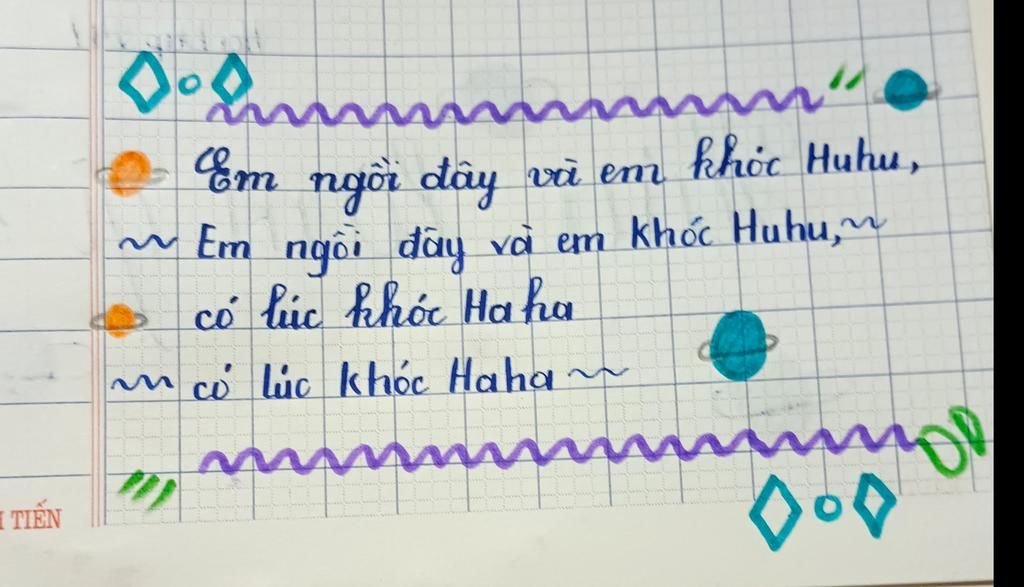 Em ngồi đây và em khóc Huhu,
~ Em ngồi đây và em khóc Huhu,~
có lúc khóc Haha
~ có lúc khóc Haha ~
TIẾN